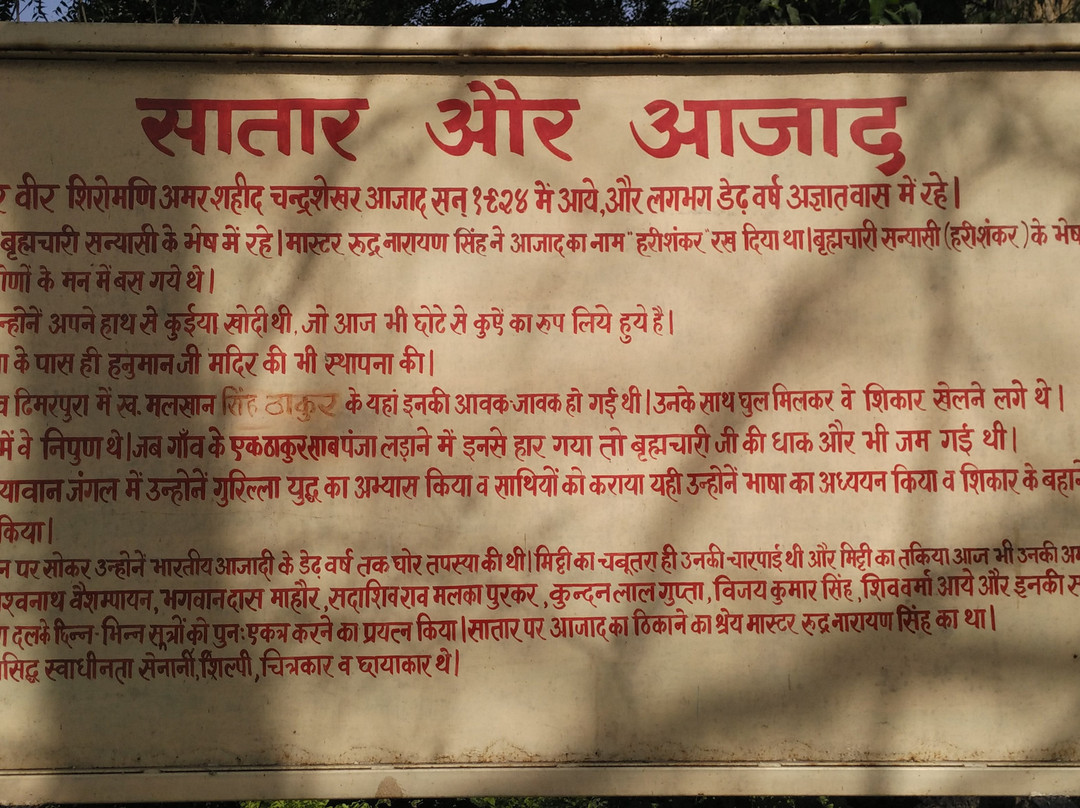 सातार और आजाद
वीर शिरोमणि अमर शहीद चन्द्रशेखर आजाद सन् १९२४ में आये, और लगभग डेढ़ वर्ष अज्ञातवास में रहे।
बृह्मचारी सन्यासी के भेष में रहे। मास्टर रुद्रनारायण सिंह ने आजाद का नाम "हरीशंकर" रख दिया था। बृह्मचारी सन्यासी (हरीशंकर) के भेष
के मन में बस गये थे।
अपने हाथ से कुईया खोदी थी, जो आज भी छोटे से कुऐं का रुप लिये हुये है।
के पास ही हनुमान जी मदिर की भी स्थापना की।
ढिमरपुरा में स्व. मलखान सिंह ठाकुर के यहां इनकी आवक-जावक हो गई थी। उनके साथ घुल मिलकर वे शिकार खेलने लगे थे।
में वे निपुण थे। जब गाँव के एक ठाकुर साब पंजा लड़ाने में इनसे हार गया तो बृह्मचारी जी की धाक और भी जम गई थी।
जंगल में उन्होनें गुरिल्ला युद्ध का अभ्यास किया व साथियों को कराया यही उन्होनें भाषा का अध्ययन किया व शिकार के बहाने
किया।
पर सोकर उन्होनें भारतीय आजादी के डेढ़ वर्ष तक घोर तपस्या की थी। मिट्टी का चबूतरा ही उनकी चारपाई थी और मिट्टी का तकिया आज भी उनकी
वैशम्पायन, भगवानदास माहौर, सदाशिवराव मलकापुरकर, कुन्दनलाल गुप्ता, विजय कुमार सिंह, शिववर्मा आये और इनकी
दलके छिन्न-भिन्न सूत्रों को पुनः एकत्र करने का प्रयत्न किया। सातार पर आजाद का ठिकाने का श्रेय मास्टर रुद्रनारायण सिंह का था।
स्वाधीनता सेनानी, शिल्पी, चित्रकार व छायाकार थे।